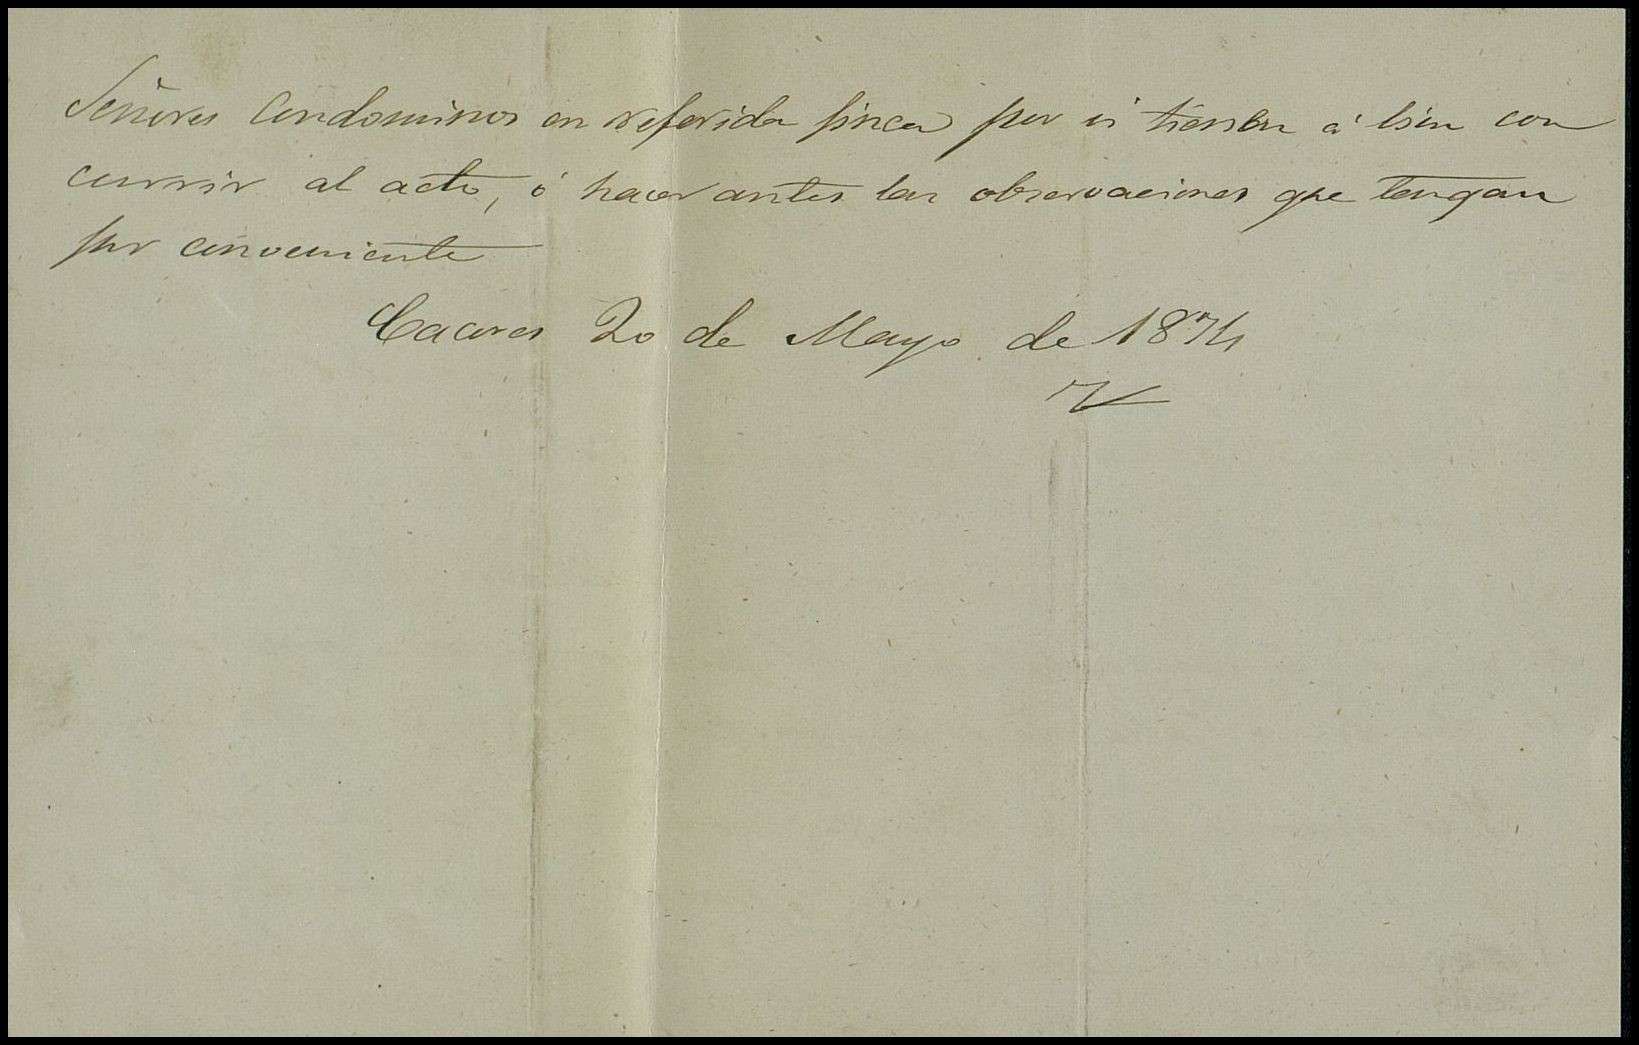 Señores Condominos en referida finca por si tienen á bien con
currir al acto, ó hacer antes las observaciones que tengan
por conveniente
Caceres 20 de Mayo de 1874